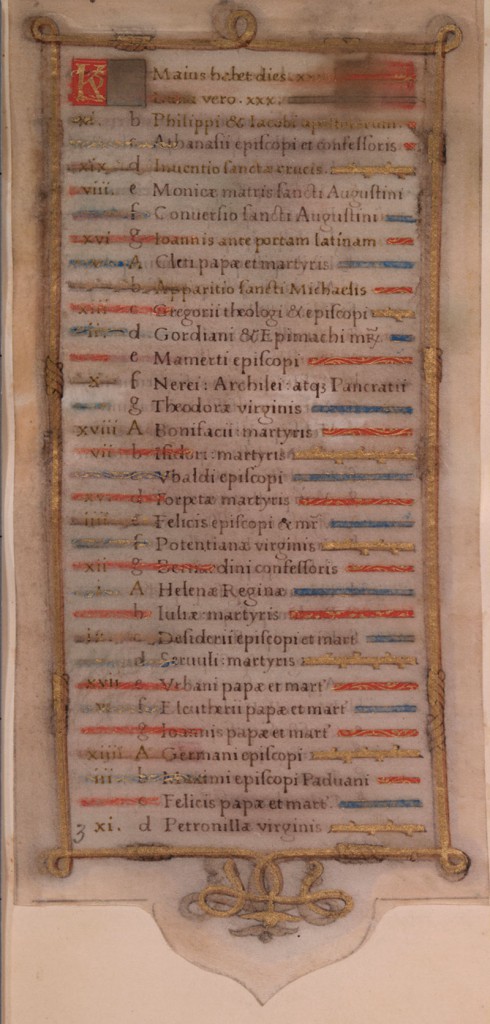 K Maius habet dies. xx
Luna vero. xxx.
xi. b Philippi & Iacobi apostolorum
c Athanasii episcopi et confessoris
xix d Inuentio sanctæ crucis
viii. e Monicæ matris sancti Augustini
f Conuersio sancti Augustini
xvi g Ioannis ante portam latinam
A Cleti papæ et martyris
b Apparitio sancti Michaelis
xiii c Gregorii theologi & episcopi
ii. d Gordiani & Epimachi mr̃y
e Mamerti episcopi
x f Nerei: Archilei: atqs Pancratii
g Theodoræ virginis
xviii A Bonifacii martyris
vii b Isidori: martyris
c Vbaldi episcopi
xv. d Torpetæ martyris
iiii e Felicis episcopi & mr̃
f Potentianæ virginis
xii g Bernardini confessoris
i A Helenæ Reginæ
b Iuliæ martyris
ix c Desiderii episcopi et mart̃
d Seruuli: martyris
xvii e Vrbani papæ et mart̃
vi f Eleutherii papæ et mart̃
g Ioannis papæ et mart̃
xiiii A Germani episcopi
iii b Maximi episcopi Paduani
c Felicis papæ et mart̃.
3 xi. d Petronillæ virginis